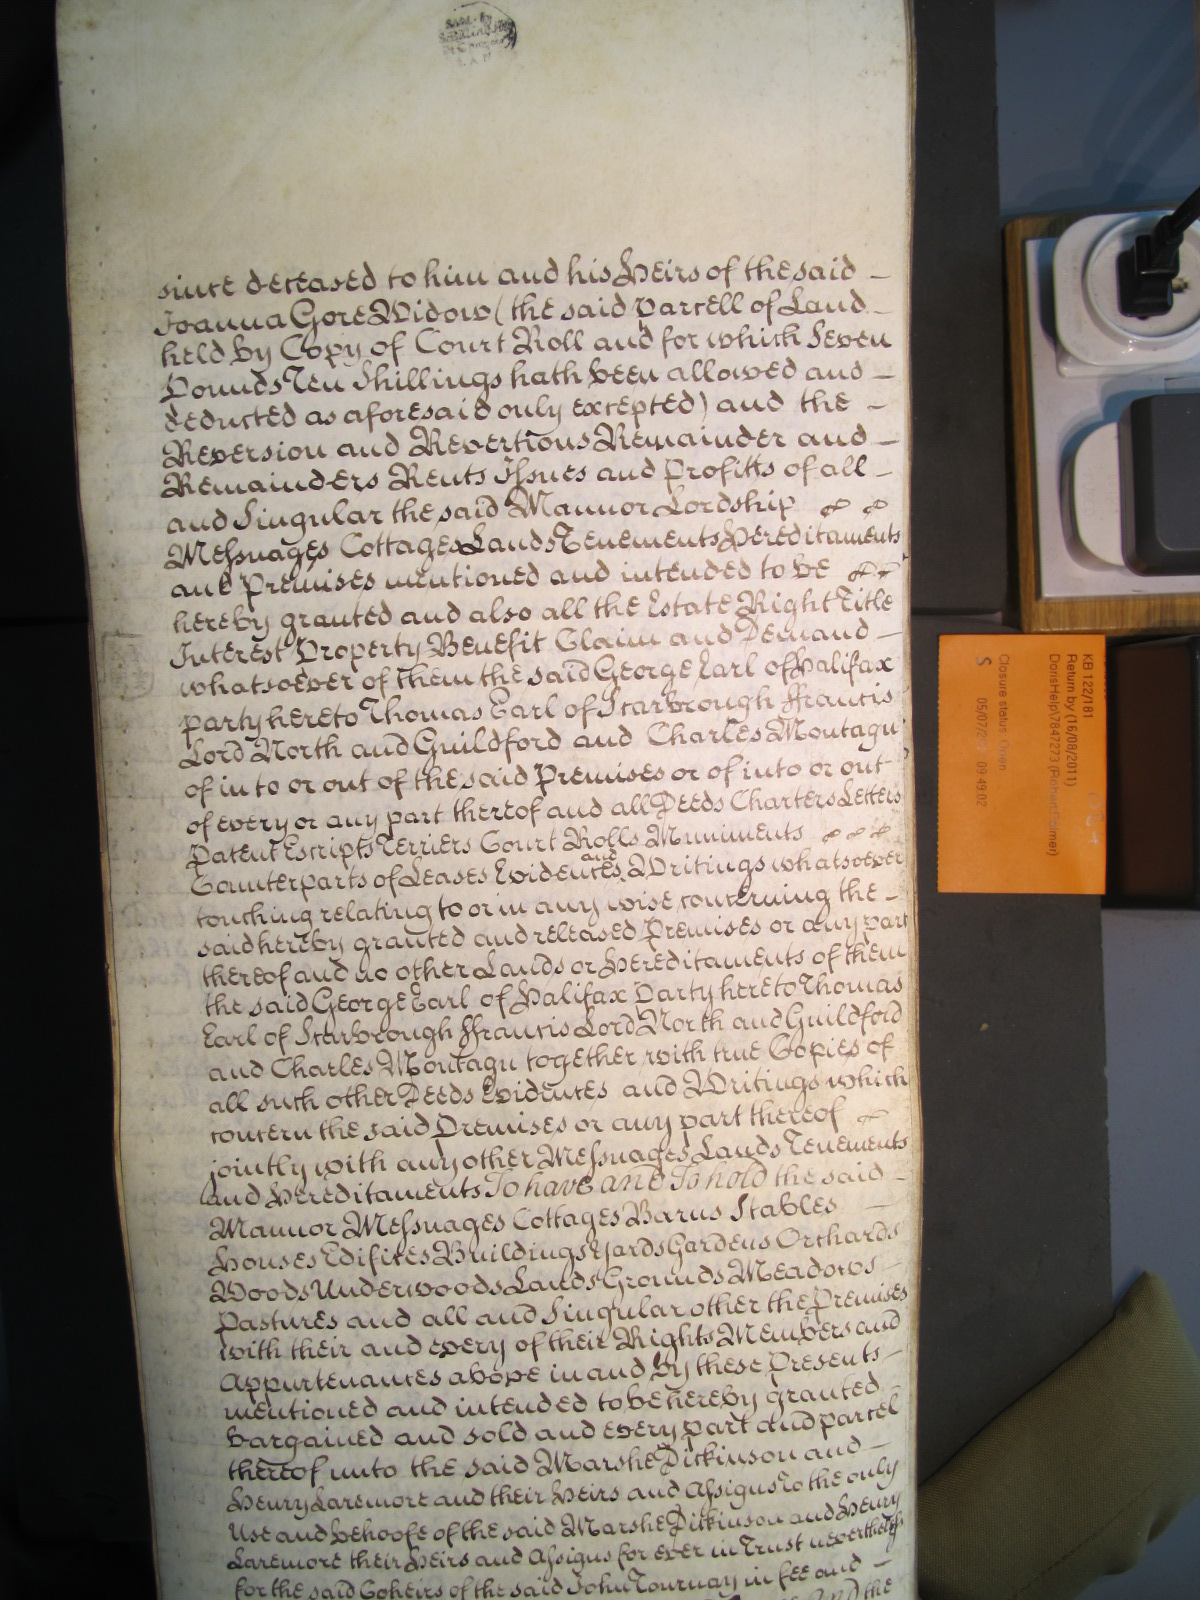 since deceased to him and his Heirs of the said
Joanna Gore Widow (the said parcell of Land
held by Copy of Court Roll and for which Seven
Pounds Ten Shillings hath been allowed and
deducted as aforesaid only excepted) and the
Reversion and Revertions Remainder and
Remainders Rents Issues and Profitts of all
and Singular the said Mannor Lordship
Messuages Cottages Lands Tenements Hereditaments
and Premises mentioned and intended to be
hereby granted and also all the Estate Right Title
Interest Property Benefit Claim and Demand
whatsoever of them the said George Earl of Halifax
party hereto Thomas Earl of Scarbrough Francis
Lord North and Guildford and Charles Montagu
of in to or out of the said Premises or of in to or out
of every or any part thereof and all Deeds Charters Letters
Patent Escripts Terriers Court Rolls Muniments
Counterparts of Leases Evidences and Writings whatsoever
touching relating to or in any wise concerning the
said hereby granted and released Premises or any part
thereof and no other Lands or Hereditaments of them
the said George Earl of Halifax Party hereto Thomas
Earl of Scarbrough Francis Lord North and Guildford
and Charles Montagu together with true Copies of
all such other Deeds Evidences and Writings which
concern the said Premises or any part thereof
jointly with any other Messuages Lands Tenements
and Hereditaments To have and To hold the said
Mannor Messuages Cottages Barns Stables
Houses Edifices Buildings Yards Gardens Orchards
Woods Underwoods Lands Grounds Meadows
Pastures and all and Singular other the Premises
with their and every of their Rights Members and
Appurtenances above in and by these Presents
mentioned and intended to be hereby granted
bargained and sold and every part and parcel
thereof unto the said Marshe Dickinson and
Henry Laremore and their Heirs and Assigns To the only
Use and behoofe of the said Marshe Dickinson and Henry
Laremore their Heirs and Assigns for ever in Trust nevertheless
for the said Coheirs of the said John Tournay in fee and
and the
KB 122/181
Return by (16/08/2011)
DorisHelp\7847273 (Robert Palmer)
Closure status Open
S 05/07/20 09:49:02